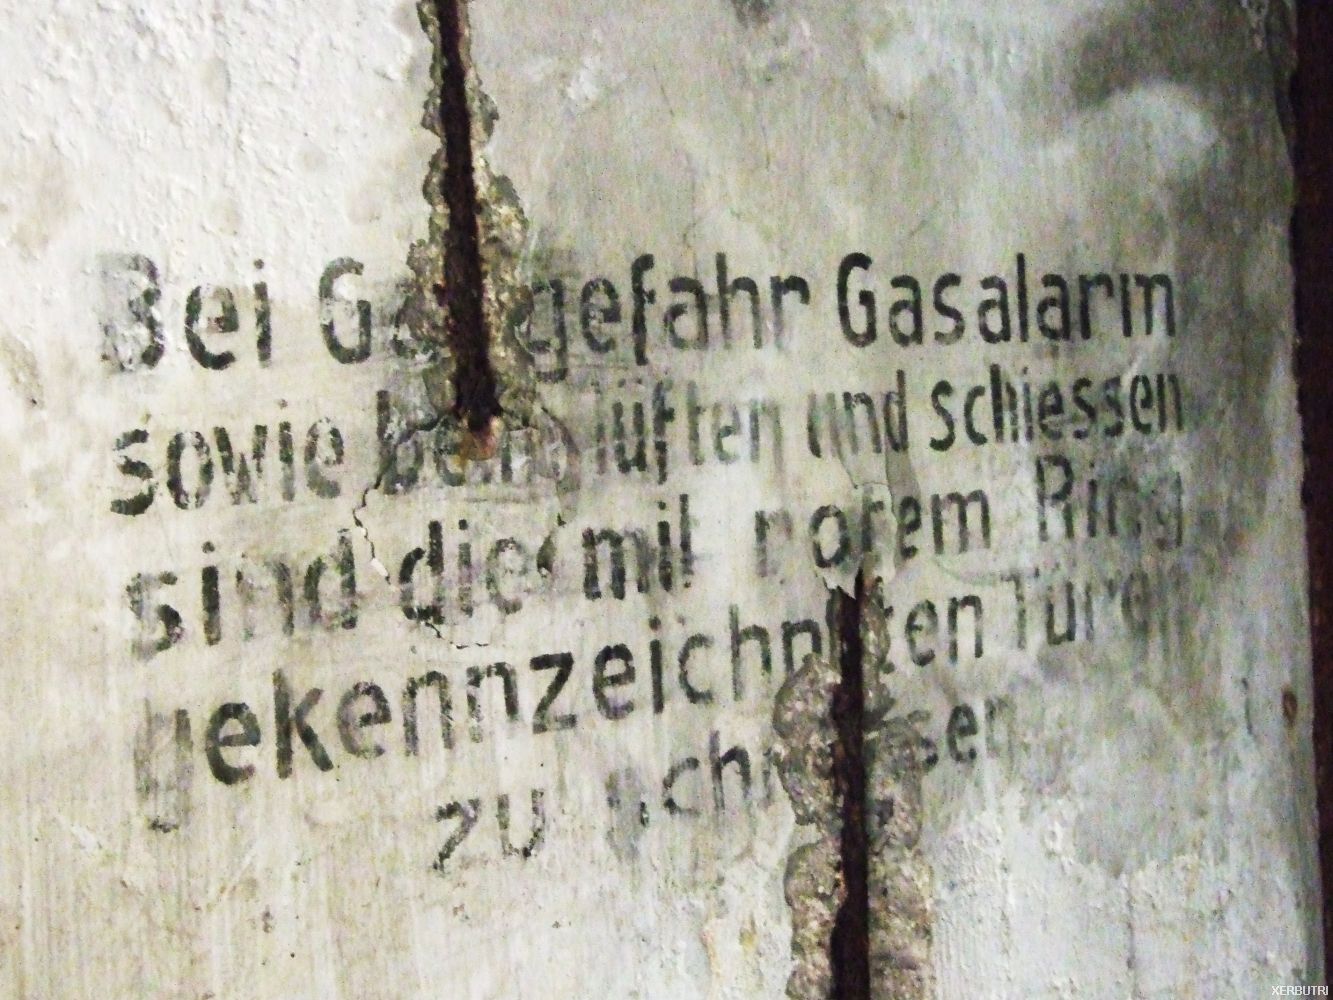 Bei Gasgefahr Gasalarm
sowie beim lüften und schiessen
sind die mit rotem Ring
gekennzeichneten Türen
zu schliessen
XERBUTRI